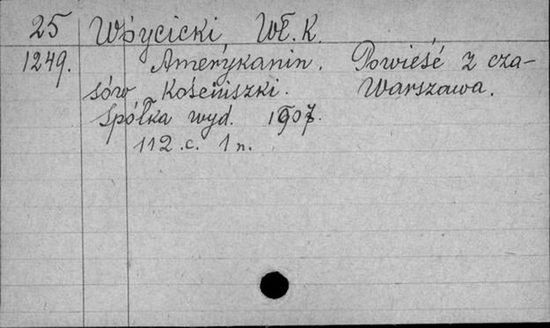 25 Wóycicki Wł. K.
1249. Amerykanin. Powieść z cza-
sów Kościuszki. Warszawa.
Spółka wyd. 1907.
112 c. 1 n.